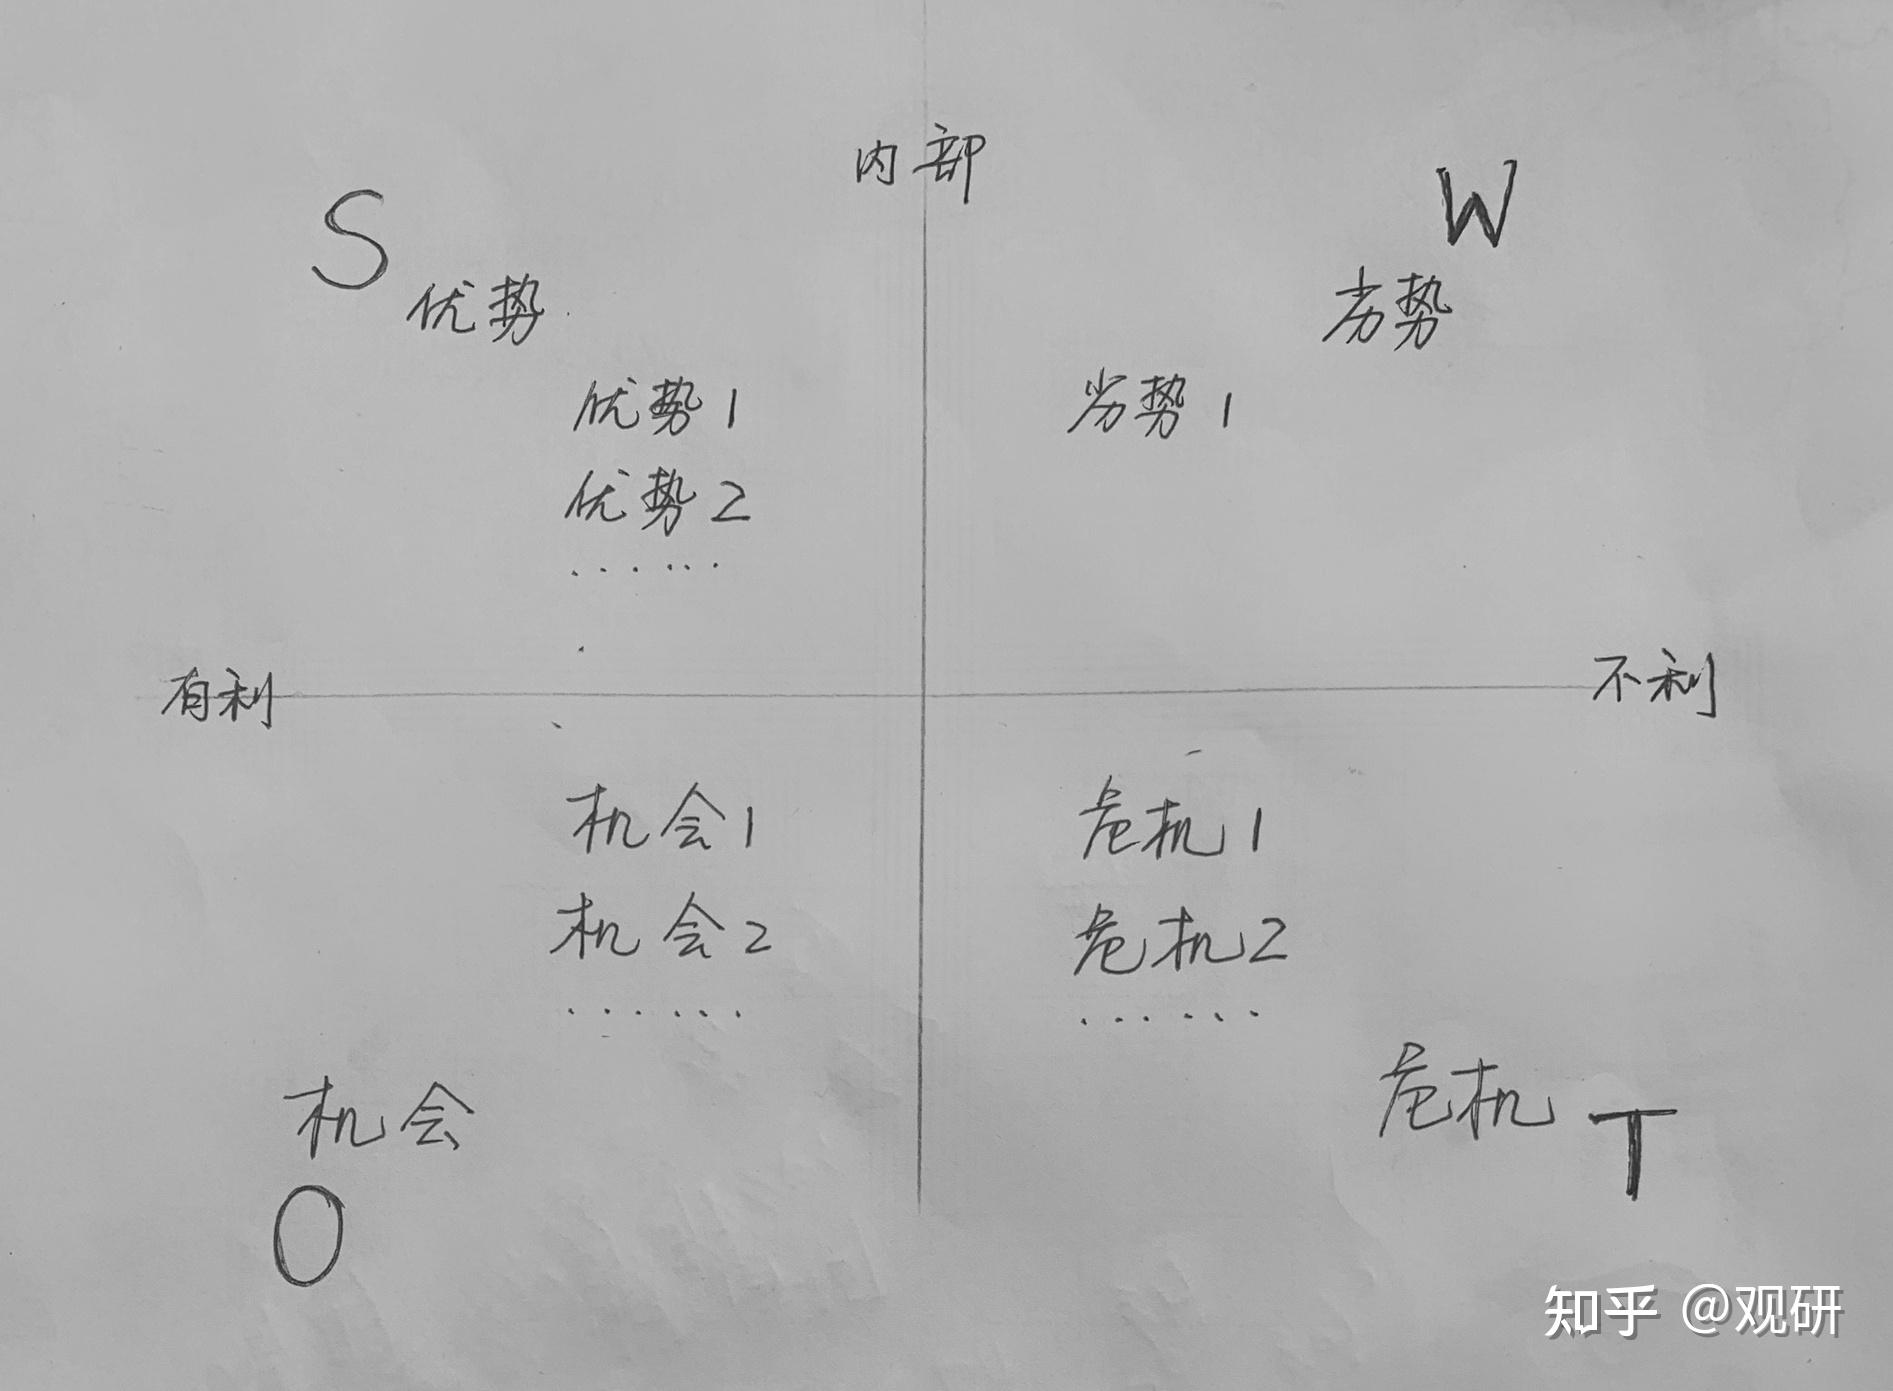 内部
S
W
优势
劣势
优势1
劣势1
优势2
......
有利
不利
机会1
危机1
机会2
危机2
......
......
机会
危机
T
O
知乎 @观研